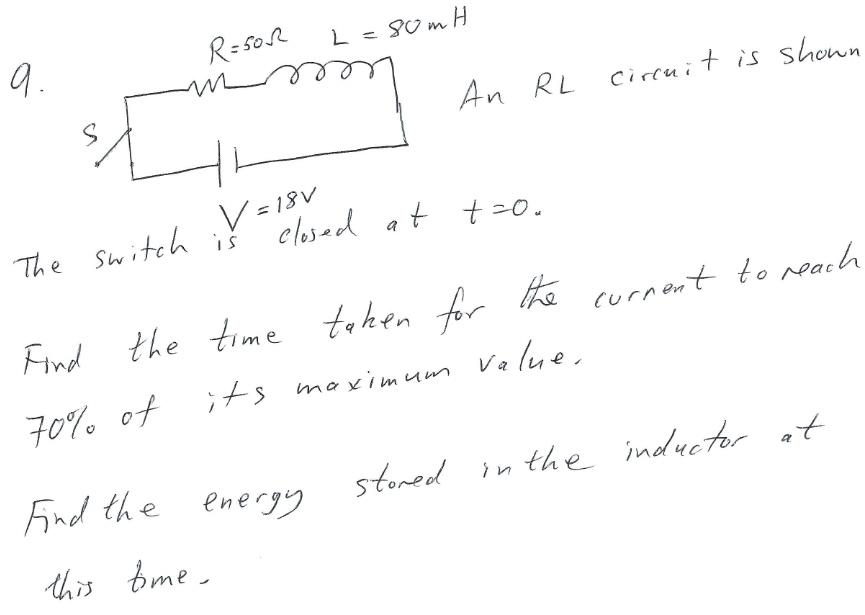 9.
R=50Ω L = 80mH
An RL circuit is shown
S
V=18V
The switch is closed at t=0.
Find the time taken for the current to reach
70% of its maximum value.
Find the energy stored in the inductor at
this time.